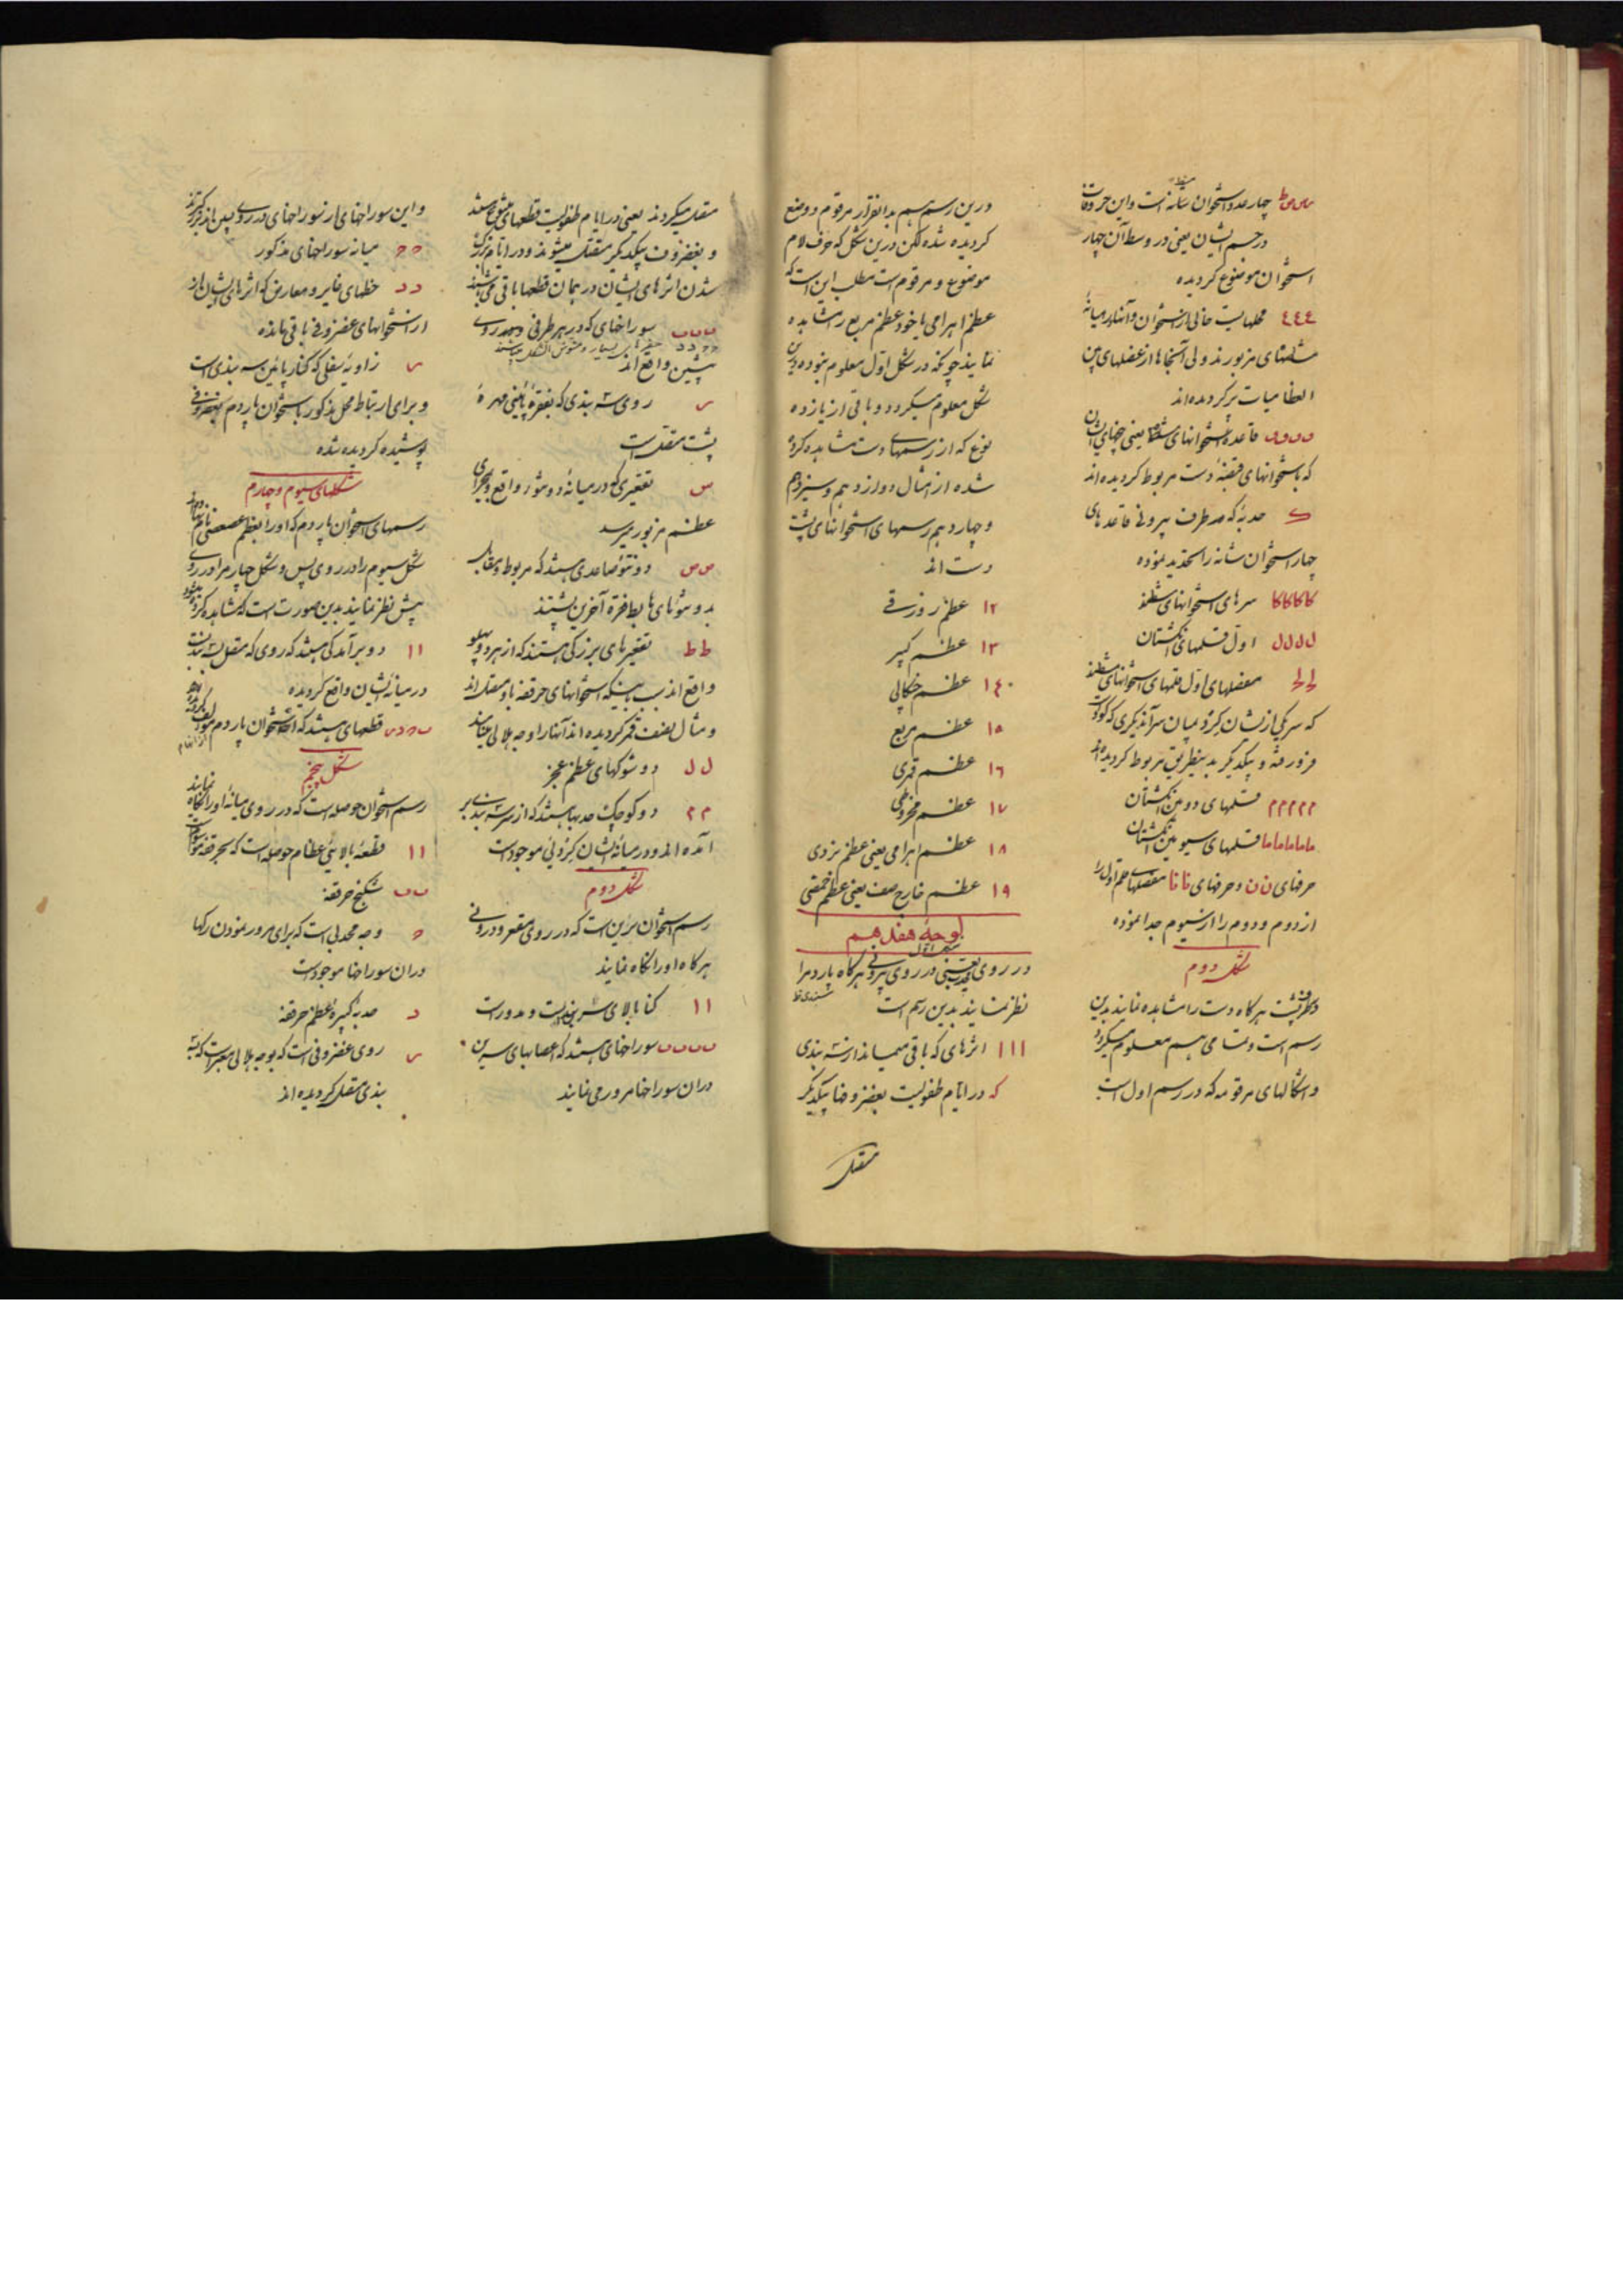 چهار عدد استخوان شانه است و این حروفات
در جسم ایشان یعنی در وسط آن چهار
استخوان موضوع گردیده
٤٤٤ محلهایست خالی از استخوان و آنها در میانهٔ
مشطهای مزبورند ولی آنجاها از عضلهای بین
العظامیات پر گردیده‌اند
قاعدهٔ استخوانهای مشط یعنی
که با استخوانهای قبضهٔ دست مربوط گردیده‌اند
حدبهٔ که طرف بیرونی قاعدهای
چهار استخوان شانه را تحدید نموده
کاکاکاکا سرهای استخوانهای مشطند
ل ل ل ل اول قلمهای انگشتان
مفصلهای اول قلمهای استخوانهای مشطند
که سر یکی ازیشان
فرو رفته و بیکدیگر بدینطریق مربوط گردیده‌اند
م م م م م قلمهای دومین انگشتان
ما ما ما ما ما قلمهای سیومین انگشتان
حرفهای ن ن و حرفهای نا نا مفصلهای قلم اول را
از دوم و دوم را از سیوم جدا نموده
شکل دوم
و طرف پشت هرگاه دست را مشاهده نمایند بدین
رسم است و تمامی هم معلوم میگردد
و اشکالهای مرقومه که در رسم اول است
درین رسم هم بدانقرار مرقوم و وضع
گردیده شده لکن درین شکل که حرف لام
موضوع و مرقوم است مطلب این است که
عظم اهرامی با خود عظم مربع را مشاهده
نمایند چونکه در شکل اول معلوم نبوده درین
شکل معلوم میگردد و باقی از یازده
نوع که از رسمهای دست مشاهده کرده
شده از اشکال دوازدهم و سیزدهم
و چهاردهم رسمهای استخوانهای پشت
دست اند
١٢ عظم زورقی
١٣ عظم کبیر
١٤ عظم چنگالی
١٥ عظم مربع
١٦ عظم قمری
١٧ عظم مخروطی
١٨ عظم اهرامی یعنی عظم نردی
١٩ عظم خارج صف یعنی عظم حمصی
لوحهٔ هفدهم
شکل اول
در روی محدب یعنی در روی بیرونی هرگاه پاردم را
نظر نمایند بدین رسم است
ااا اثرهای که باقی میماند از سه بندی
که در ایام طفولیت بغضروفها بیکدیگر
متصل
متصل میگردند یعنی در ایام طفولیت قطعهای
و بغضروف بیکدیگر متصل میشوند و در ایام بزرگ
شدن اثرهای ایشان در همان قطعها باقی میباشند
ب ب ب سوراخهای که در هر طرفی و بهمه روی
پیشین واقع اند
روی سه بندی که بفقرهٔ پائینی مهرهٔ
پشت متصل است
س تقعیری که در میانهٔ دو نتوء واقع و بمجرای
عظم مزبور میرسد
ص ص دو نتوء صاعدی هستند که مربوط و مقابل
بدو نتوهای هابط فقرهٔ آخرین پشتند
ط ط تقعیرهای بزرگی هستند که از هر دو پهلو
واقع اند بسبب اینکه استخوانهای حرقفه باو متصل اند
و مثال نصف قمر گردیده‌اند آنها را وجه هلالی مینامند
ل ل دو شوکهای عظم عجز
م م دو کوچک حدبها هستند که از سر سه بندی بر
آمده اند و در میانهٔ ایشان موجود است
شکل دوم
رسم استخوان سرین است که در روی مقعر و درونی
هرگاه او را نگاه نمایند
اا کنار بالای سه بندیست و مدور است
ب ب ب ب سوراخهای هستند که اعصابهای سرین
دران سوراخها مرور می نمایند
و این سوراخهای از سوراخهای در روی پس مانند بزرگترند
ه ه میانه سوراخهای مذکور
د د خطهای غایر و معارض که اثرهای ایشان از
از استخوانهای غضروفی باقی مانده
زاویهٔ سفلی که کنار پائین سه بندی است
و برای ارتباط محل مذکور با استخوان پاردم بغضروفی
پوشیده گردیده شده
شکلهای سیوم و چهارم
رسمهای استخوان پاردم که او را بعظم عصعص نام نهاده‌اند
شکل سیوم را در روی پس و شکل چهارم را در روی
پیش نظر نمایند بدین صورت است که مشاهده کرده میشود
اا دو برآمدگی هستند که روی که متصل بسه بندیست
در میانهٔ ایشان واقع گردیده
قطعهای هستند که استخوان پاردم
شکل پنجم
رسم استخوان حوصله است که در روی میانهٔ او را نگاه نمایند
اا قطعهٔ بالائی عظام حوصله است که بحرقفه موسوم است
ب ب شکنج حرقفه
ه وجه محدبی است که برای مرور نمودن رگها
دران سوراخها موجود است
د حدبهٔ کبیرهٔ عظم حرقفه
روی غضروفی است که بوجه هلالی معبر است که بسه
بندی متصل گردیده اند